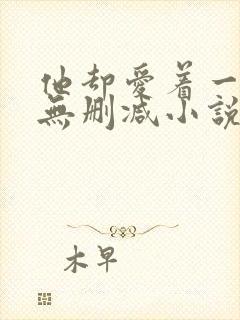 他却愛着一
無删减小説
木早